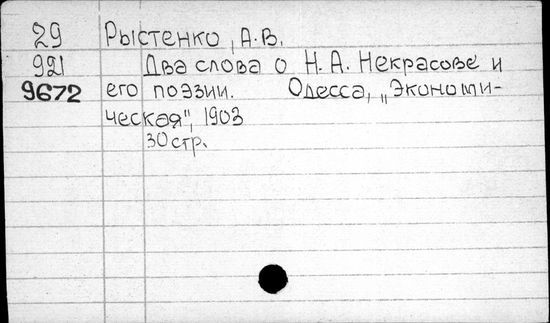 29 Рыстенко, А.В.
921 Два слова о Н.А. Некрасове и
9672 его поэзии. Одесса, „Экономи-
ческая", 1903
30 стр.